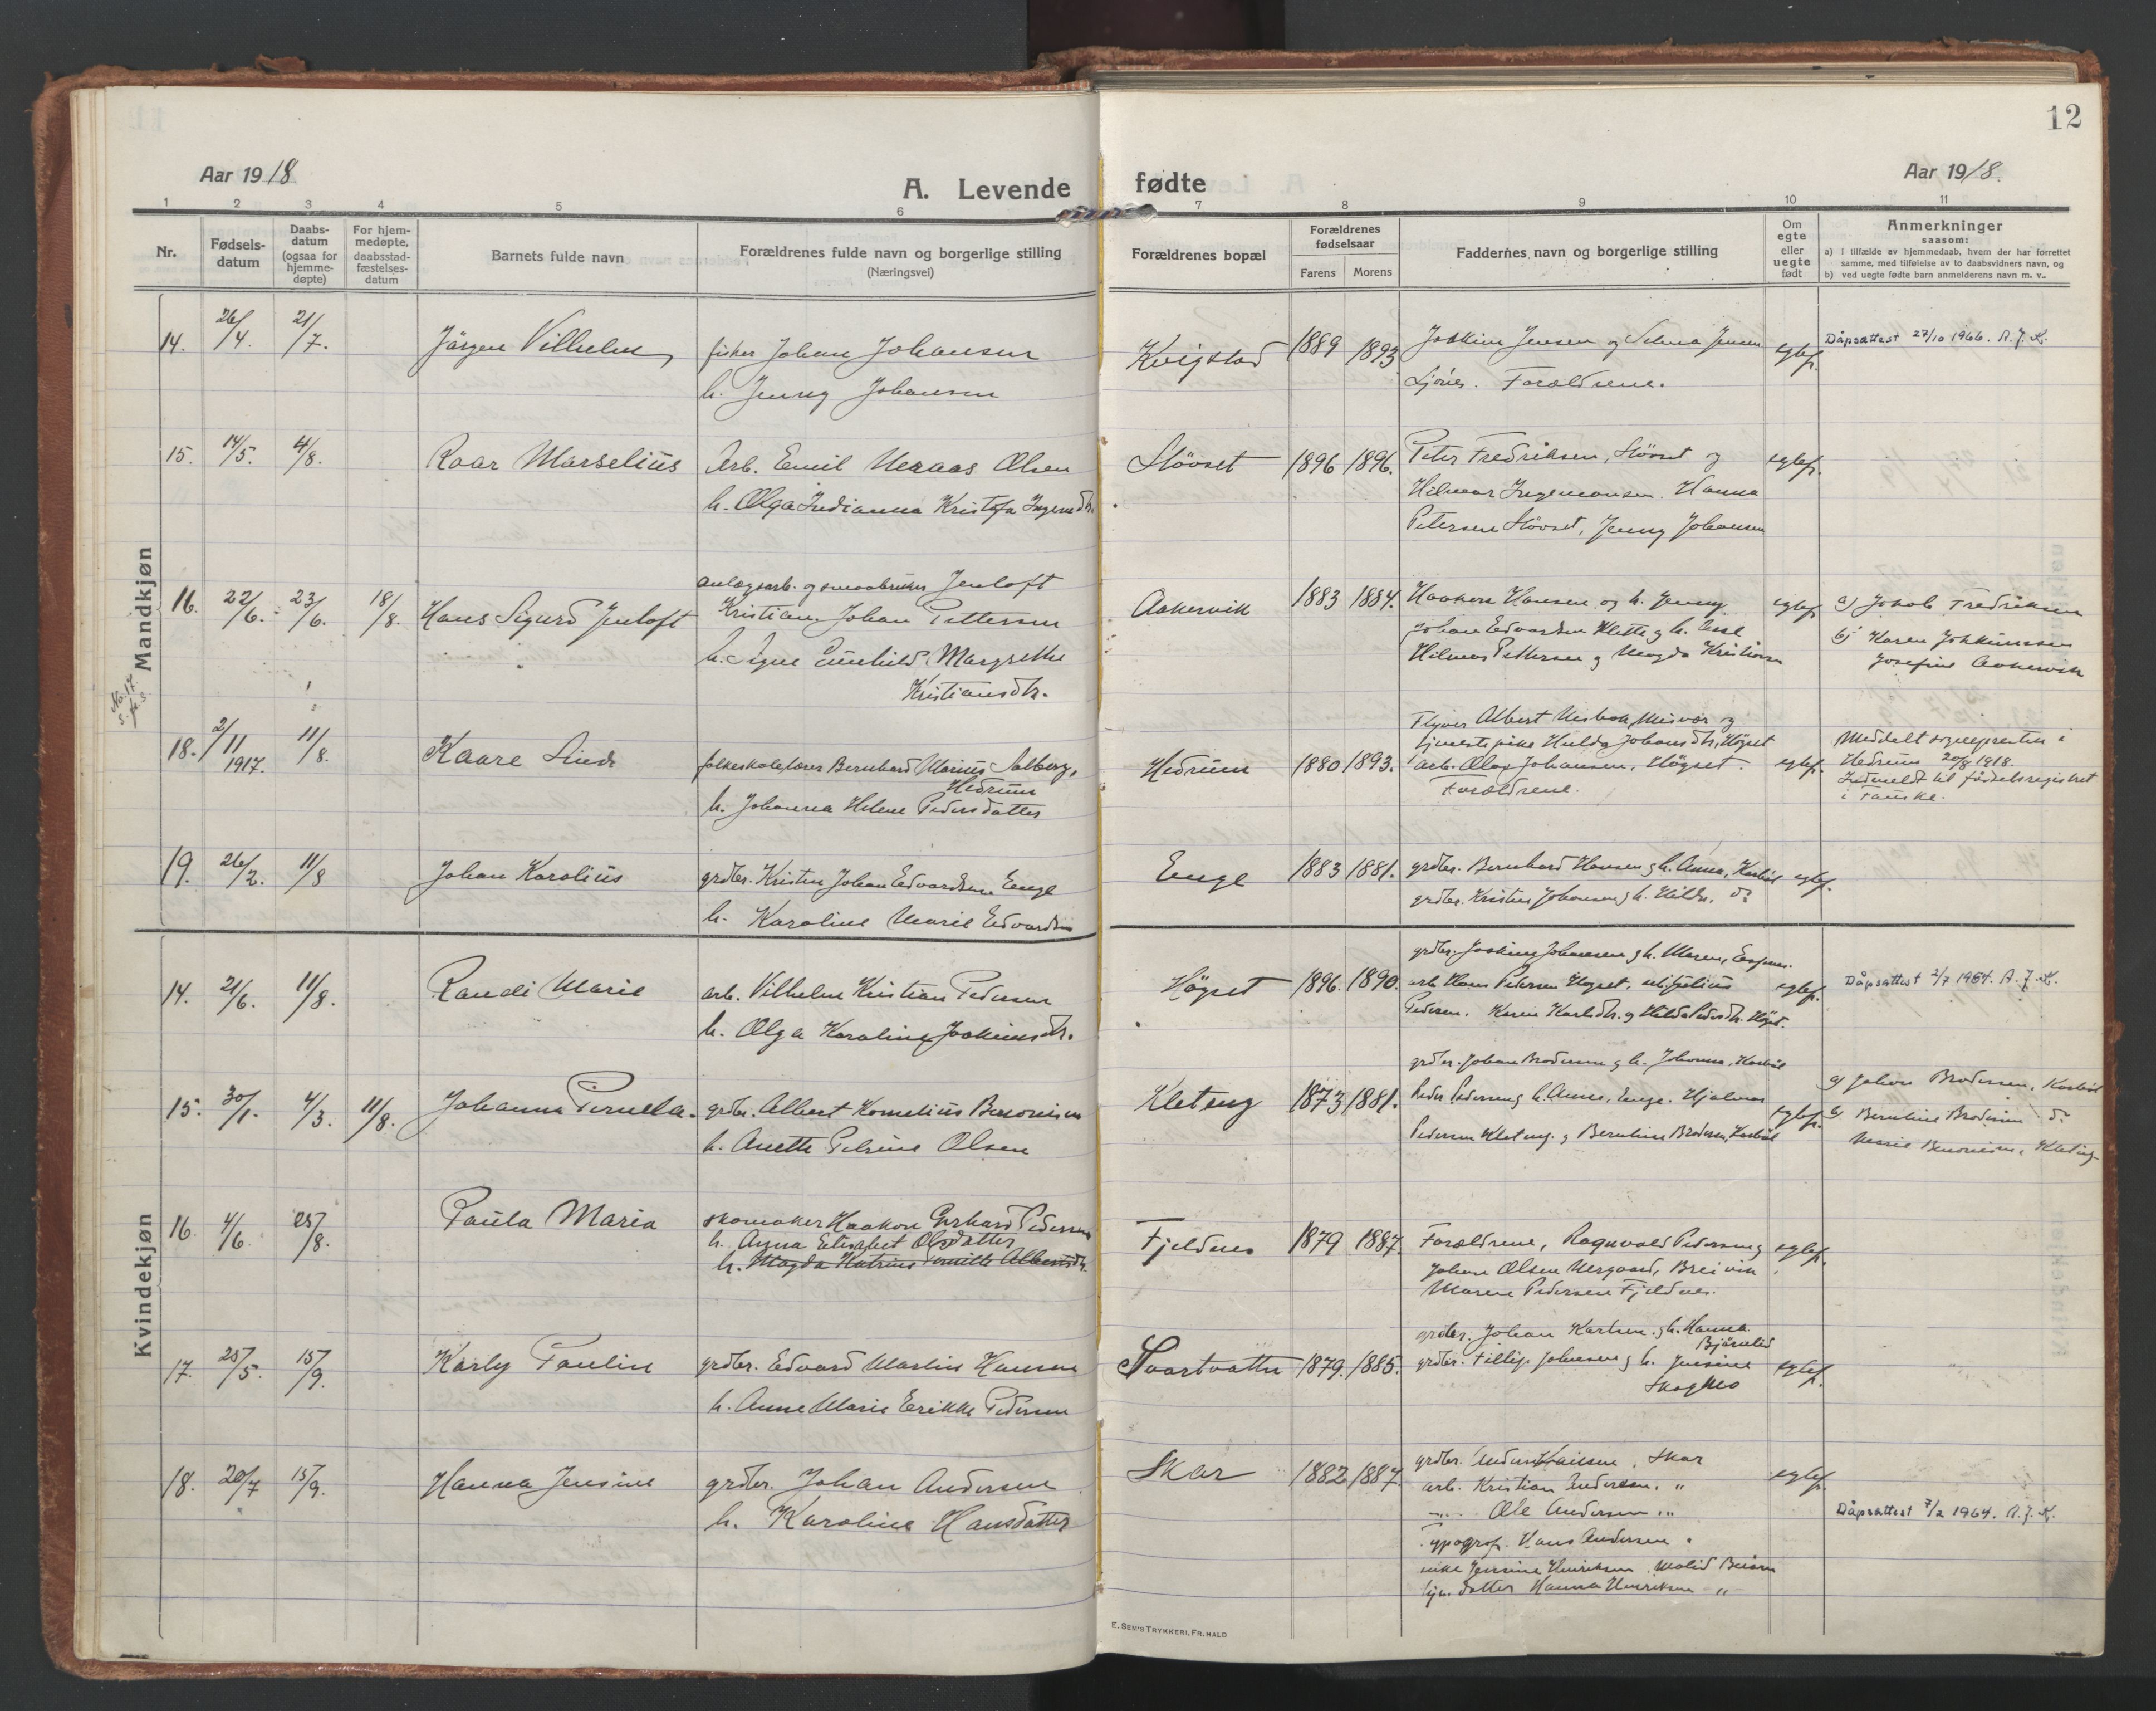 12
Aar 1918
A. Levende fødte
Aar 1918.
1 2 3 4 5 6 7 8 9 10 11
Nr.
Fødsels-
datum
Daabs-
datum
(ogsaa for
hjemme-
døpte)
For hjem-
medøpte,
daabsstad-
fæstelses-
datum
Barnets fulde navn
Forældrenes fulde navn og borgerlige stilling
(Næringsvei)
Forældrenes bopæl
Forældrenes
fødselsaar
Farens Morens
Faddernes navn og borgerlige stilling
Om
egte
eller
uegte
født
Anmerkninger
saasom:
a) i tilfælde av hjemmedaab, hvem der har forrettet
samme, med tilføielse av to daabsvidners navn, og
b) ved uegte fødte barn anmelderens navn m. v.
Mandkjøn
14. 26/4. 21/7. Jörgen Vilhelm fisker Johan Johansen
h. Jenny Johansen
Kvigstad 1889 1893. Joakim Jensen og Selma Jensen
Ljönes. Forældrene.
egtef.
Dåpsattest 27/10 1966. A. J. K.
15. 14/5. 4/8. Roar Marselius Arb. Emil Olsen
h. Olga Indianna Kristofa
Stövset 1896 1896. Peter Fredriksen, Stövset og
Hilmar Ingemansen. Hanna
Petersen Stövset, Jenny Johansen
egtef.
16. 22/6. 23/6. 18/8. Hans Sigurd Jenloft
anlægsarb. og smaabruker Jenloft
Kristian Johan Pettersen
h. Signe Gunhild Margrethe
Kristiansdtr.
Aakervik 1883 1884. Haakon Hansen og h. Jenny
Johan Edvardsen Klette og h.
Hilmar Pettersen og Magda Kristiansen
egtef.
a) Jakob Fredriksen
b) Karen Joakimsen
Josefine Aakervik
No. 17
s. fr. s.
18. 2/11 1917. 11/8. Kaare Lind
folkeskolelærer Bernhard Marius Solberg,
Hedrum
h. Johanna Helene Pedersdatter
Hedrum 1880 1893. Albert Misvær og
tjenestepike Hulda Johansdtr, Högset
arb. Olav Johansen, Högset.
Forældrene.
egtef.
Meddelt sognepresten i
Hedrum 20/8 1918.
Indmeldt til fødselsregistret
i Fauske.
19. 26/2. 11/8 Johan Karolius
grdbr. Kristen Johan Edvardsen Enge
h. Karoline Marie Edvardsen
Enge 1883 1881. grdbr. Bernhard Hansen og h. Anna,
grdbr. Kristen Johansen og h. Hilda, do
egtef.
Kvindekjøn
14. 21/6. 11/8. Randi Marie
arb. Vilhelm Kristian Pedersen
h. Olga Karoline Joakimsdtr.
Högset 1896. 1890. grdbr. Joakim Johansen og h. Maren,
arb. Hans Pedersen Högset,
Pedersen. Karen Karlsdtr. og Hilda Pedersdtr. Högset.
egtef.
Dåpsattest 2/7 1964. A. J. K.
15. 30/1. 4/3. 11/8. Johanna Pernella.
grdbr. Albert Kornelius Benonisen
h. Anette Petrine Olsen
Kleteng 1873 1881. grdbr. Johan Brodersen og h. Johanna,
Peder Pedersen og h. Anna, Enge. Hjalmar
Pedersen Kleteng. og Bernhine Brodersen,
egtef.
a) Johan Brodersen,
b) Bernhine Brodersen do
Marie Benonisen, Kleteng
16. 4/6. 25/8. Paula Maria
skomaker Haakon Gerhard Pedersen
h. Anna Elisabet Olsdatter
h. Magda Katrine Pernille Albertsdtr.
Fjeldnes 1879 1887. Forældrene, Ragnvald Pedersen og
Johan Olsen Nergaard, Breivik
Maren Pedersen Fjeldnes.
egtef.
17. 25/5. 15/9. Karly Paulin
grdbr. Edvard Martin Hansen
h. Anne Marie Erikke Pedersen
Svartvatn 1879. 1885. grdbr. Johan Karlsen og h. Hanna
Bjørnlid
grdbr. Fillip Johnsen og h. Jensine
Skogmo
egtef.
18. 20/7 15/9. Hanna Jensine
grdbr. Johan Andersen
h. Karoline Hansdatter
Skar 1882 1887. grdbr. Anders Hansen, Skar
arb. Kristian Andersen, "
Ole Andersen "
Typograf. Hans Andersen "
enke Jensine Henriksen, Beiarn
datter Hanna Henriksen "
egtef.
Dåpsattest 7/2 1964. A. J. K.
E. SEM'S TRYKKERI, FR. HALD